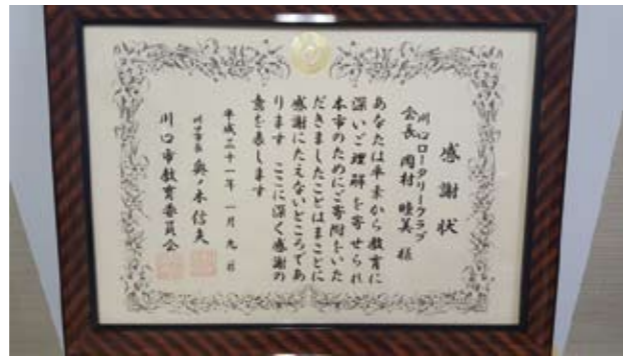 感謝状
川口ロータリークラブ
会長 岡村 睦美 様
あなたは平素から教育に
深いご理解を寄せられ
本市のためにご寄附をいた
だきましたことはまことに
感謝にたえないところであ
ります ここに深く感謝の
意を表します
平成三十一年一月九日
川口市長 奥ノ木信夫
川口市教育委員会